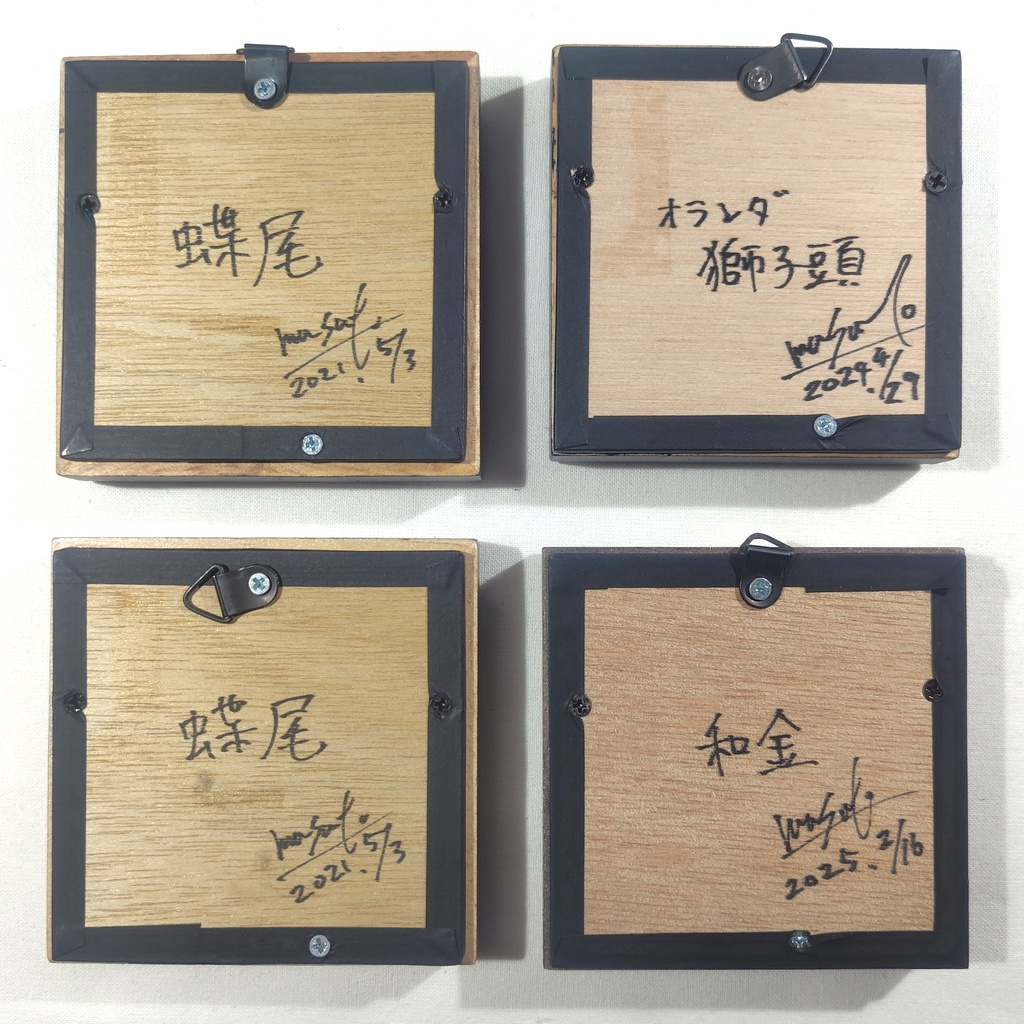 蝶尾
masato
2021. 5/3
オランダ
獅子頭
masato
2024. 4/29
蝶尾
masato
2021. 5/3
和金
masato
2025. 2/16